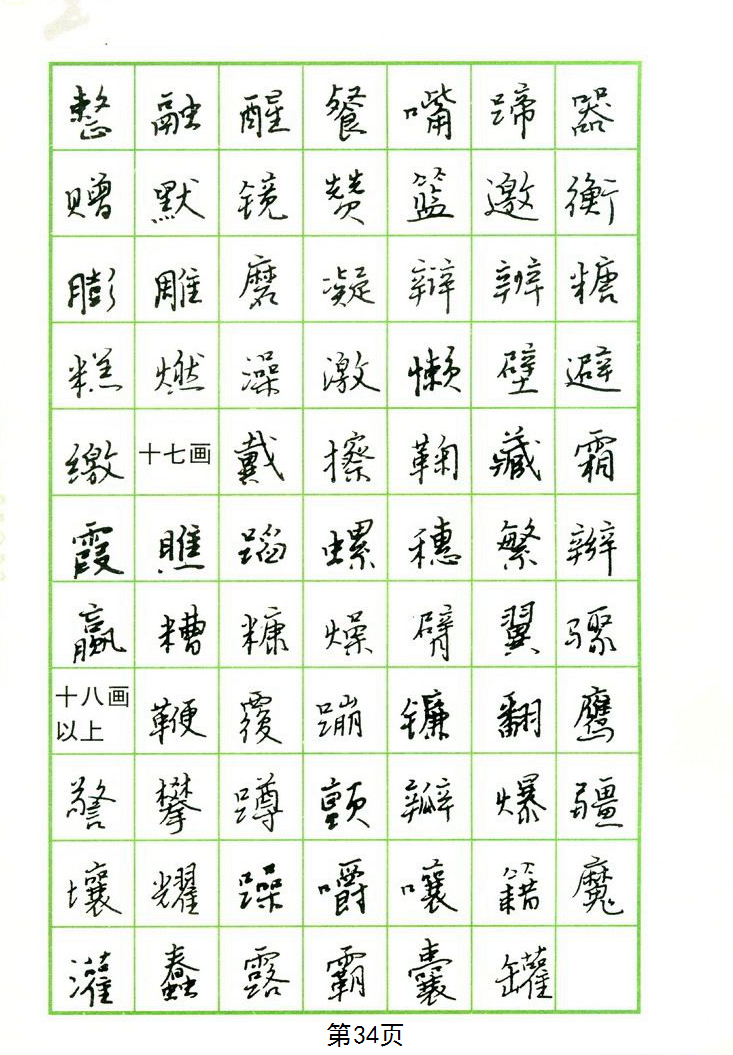 整 融 醒 餐 嘴 蹄 器
赠 默 镜 赞 篮 邀 衡
膨 雕 磨 凝 辩 辨 糖
糕 燃 澡 激 懒 壁 避
缴 十七画 戴 擦 鞠 藏 霜
霞 瞧 蹈 螺 穗 繁 辫
赢 糟 糠 燥 臂 翼 骤
十八画以上 鞭 覆 蹦 镰 翻 鹰
警 攀 蹲 颤 瓣 爆 疆
壤 耀 躁 嚼 嚷 籍 魔
灌 蠢 露 霸 囊 罐
第34页